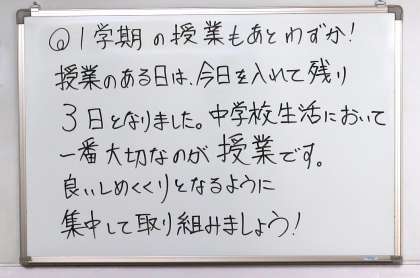 ◎1学期の授業もあとわずか!
授業のある日は、今日を入れて残り
3日となりました。中学校生活において
一番大切なのが授業です。
良いしめくくりとなるように
集中して取り組みましょう!